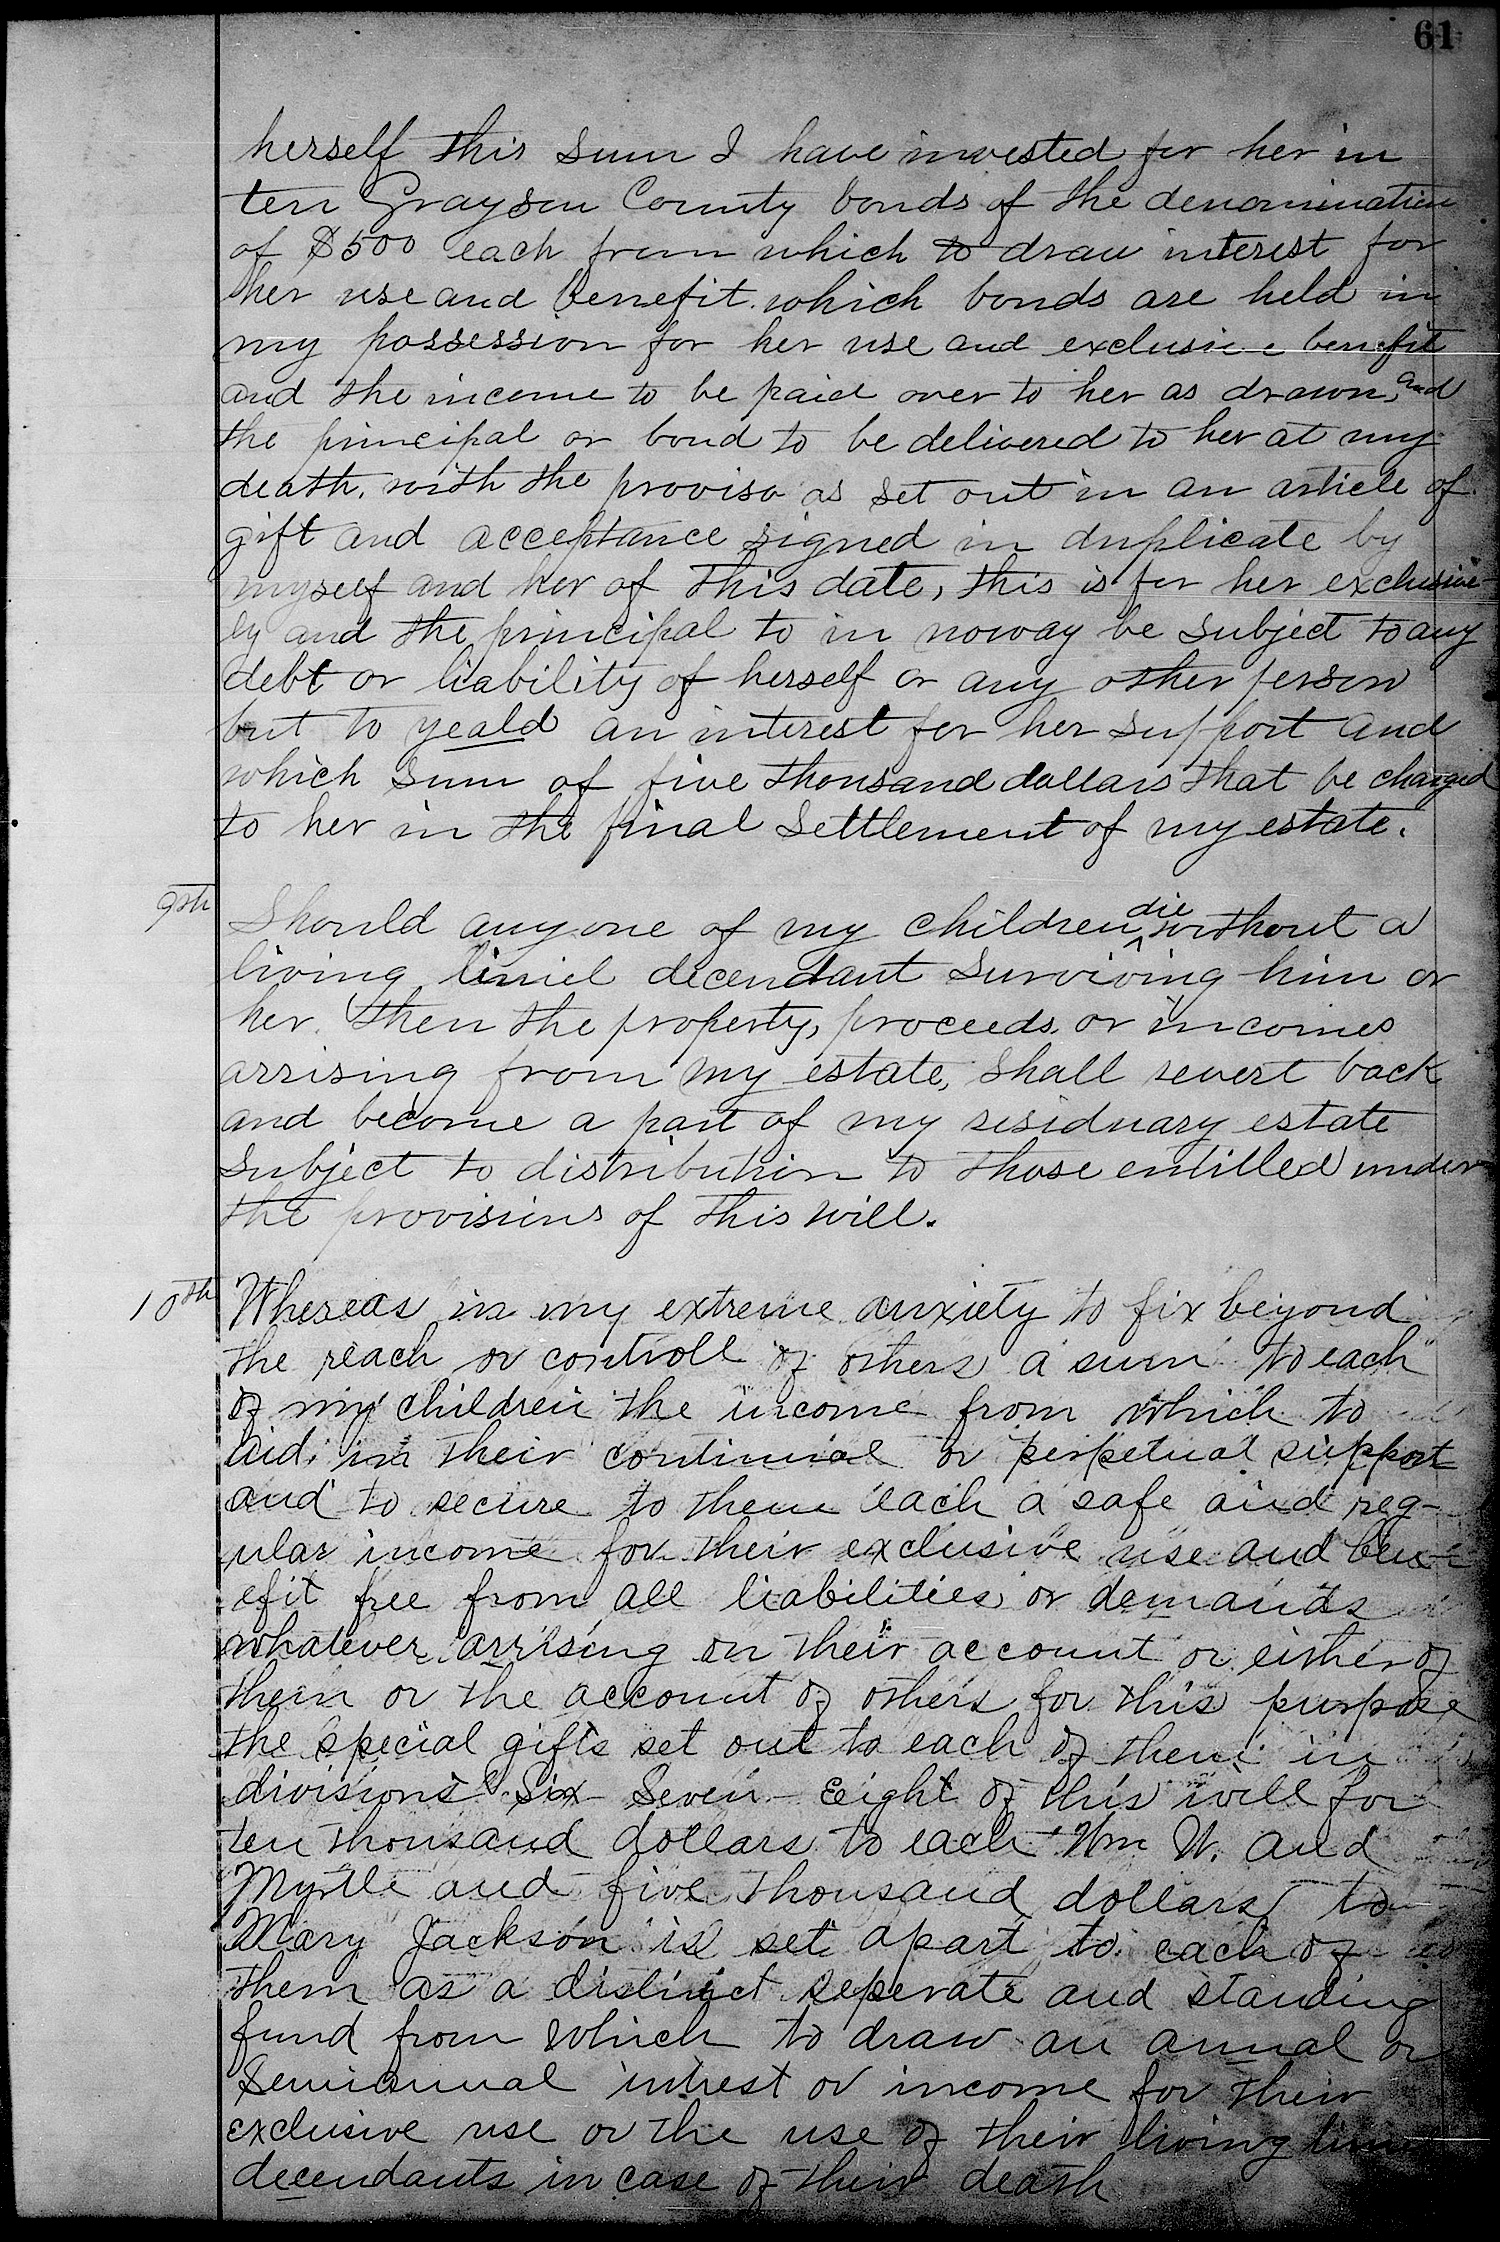 61
herself this sum I have invested for her in
ten Grayson County bonds of the denomination
of $500 each from which to draw interest for
her use and benefit. which bonds are held in
my possession for her use and exclusive benefit
and the income to be paid over to her as drawn, and
the principal or bond to be delivered to her at my
death. with the proviso as set out in an article of
gift and acceptance signed in duplicate by
myself and her of this date, this is for her exclusive-
ly and the principal to in noway be subject to any
debt or liability of herself or any other person
but to yeald an interest for her support and
which sum of five thousand dollars that be charged
to her in the final settlement of my estate.
9th Should anyone of my children die without a
living liniel decendant surviving him or
her. then the property, proceeds. or incomes
arrising from my estate, shall revert back
and become a part of my residuary estate
subject to distribution to those entitled under
the provisions of this will.
10th Whereas in my extreme anxiety to fix beyond
the reach or controll of others a sum to each
of my children the income from which to
aid in their continual or perpetual support
and to secure to them each a safe and reg-
ular income for their exclusive use and ben-
efit free from all liabilities or demands
whatever arrising on their account or either of
them or the account of others for this purpose
the special gifts set out to each of them in
divisions Six - Seven - Eight of this will for
ten thousand dollars to each Wm W. and
Myrtle and five thousand dollars to
Mary Jackson is set apart to each of
them as a distinct seperate and standing
fund from which to draw an anual or
Semianual intrest or income for their
exclusive use or the use of their living
decendants in case of their death